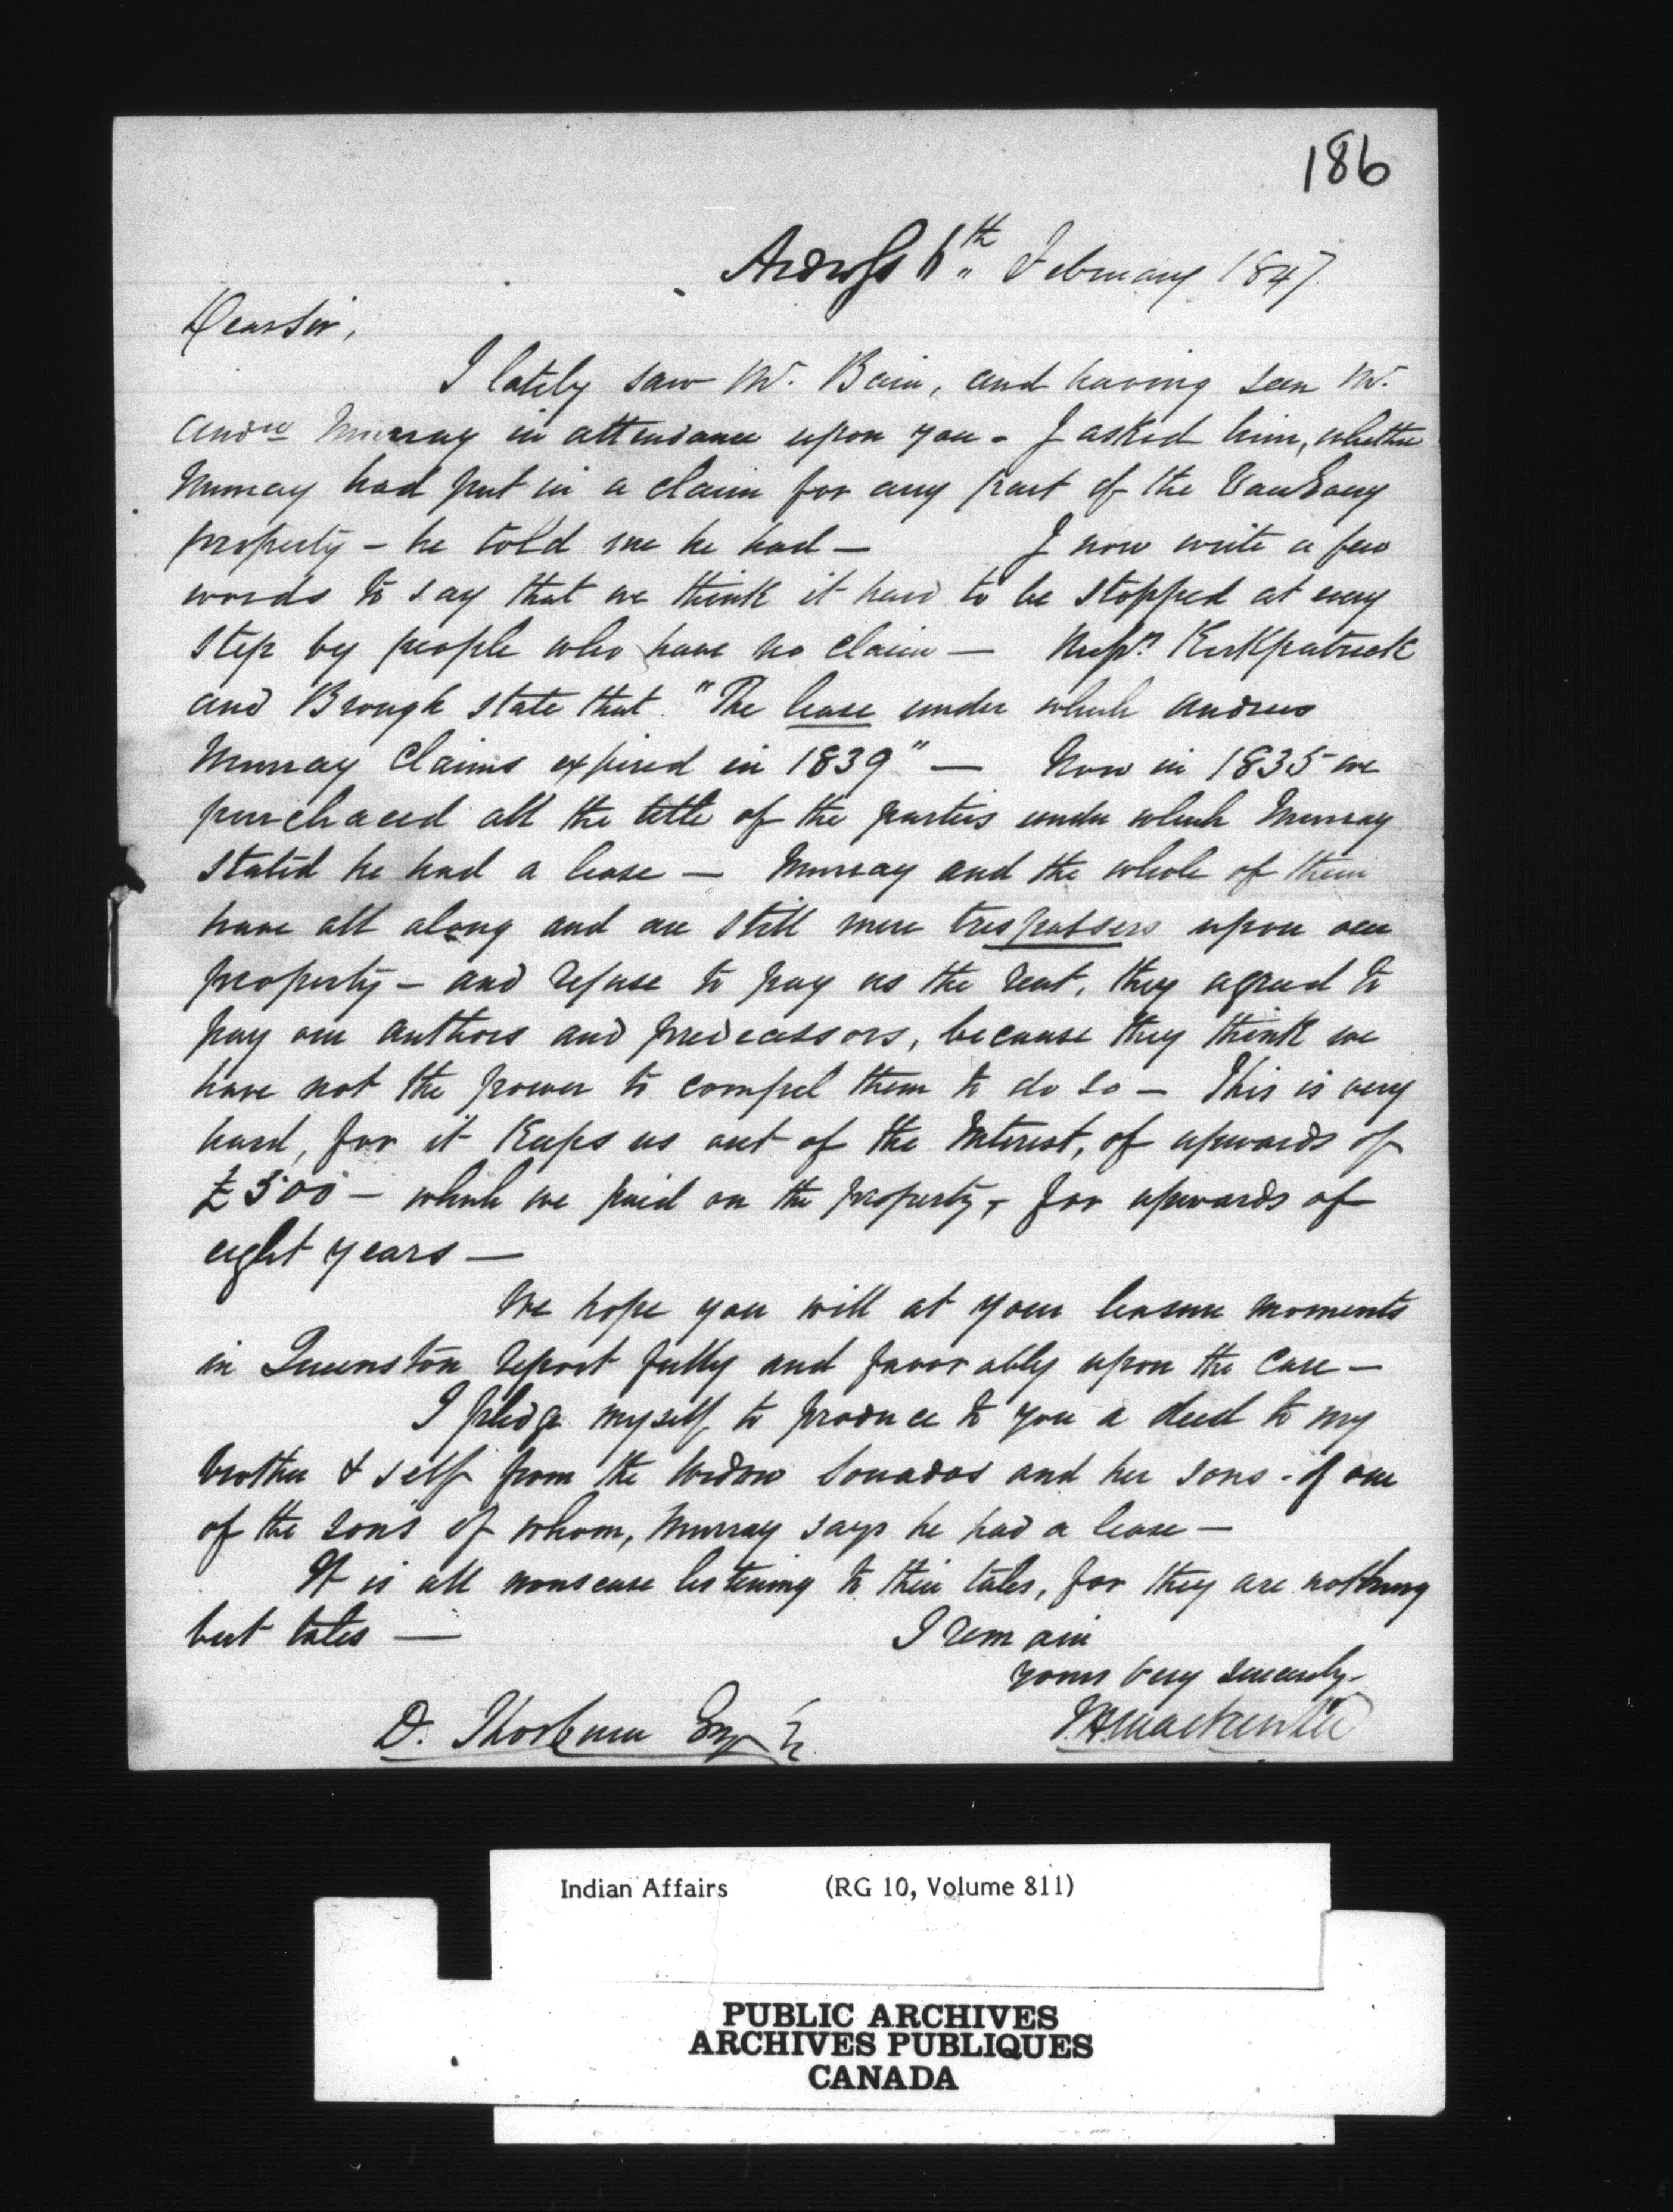 186
Ardross 6th February 1847
Dear Sir,
I lately saw Mr. Bain, and having seen Mr.
Andw Murray in attendance upon you - I asked him, whether
Murray had put in a claim for any part of the VanEvery
property - he told me he had - I now write a few
words to say that we think it hard to be stopped at every
step by people who have no claim - Messrs. Kirkpatrick
and Brough state that "The lease under which Andrew
Murray Claims expired in 1839" - Now in 1835 we
purchaced all the title of the parties under which Murray
stated he had a lease - Murray and the whole of them
have all along and are still mere trespassers upon our
property - and refuse to pay us the rent, they agreed to
pay our authors and predecessors, because they think we
have not the power to compel them to do so - This is very
hard, for it keeps us out of the Interest, of upwards of
£500 - which we paid on the property, for upwards of
eight years -
We hope you will at your leasure moments
in Queenston report fully and favorably upon the case -
I pledge myself to produce to you a deed to my
brother & self from the widow and her sons - of one
of the sons of whom, Murray says he had a lease -
It is all nonsense listening to their tales, for they are nothing
but tales - I remain
yours very sincerely
D. Thorburn Esqr Mackenzie
Indian Affairs (RG 10, Volume 811)
PUBLIC ARCHIVES
ARCHIVES PUBLIQUES
CANADA